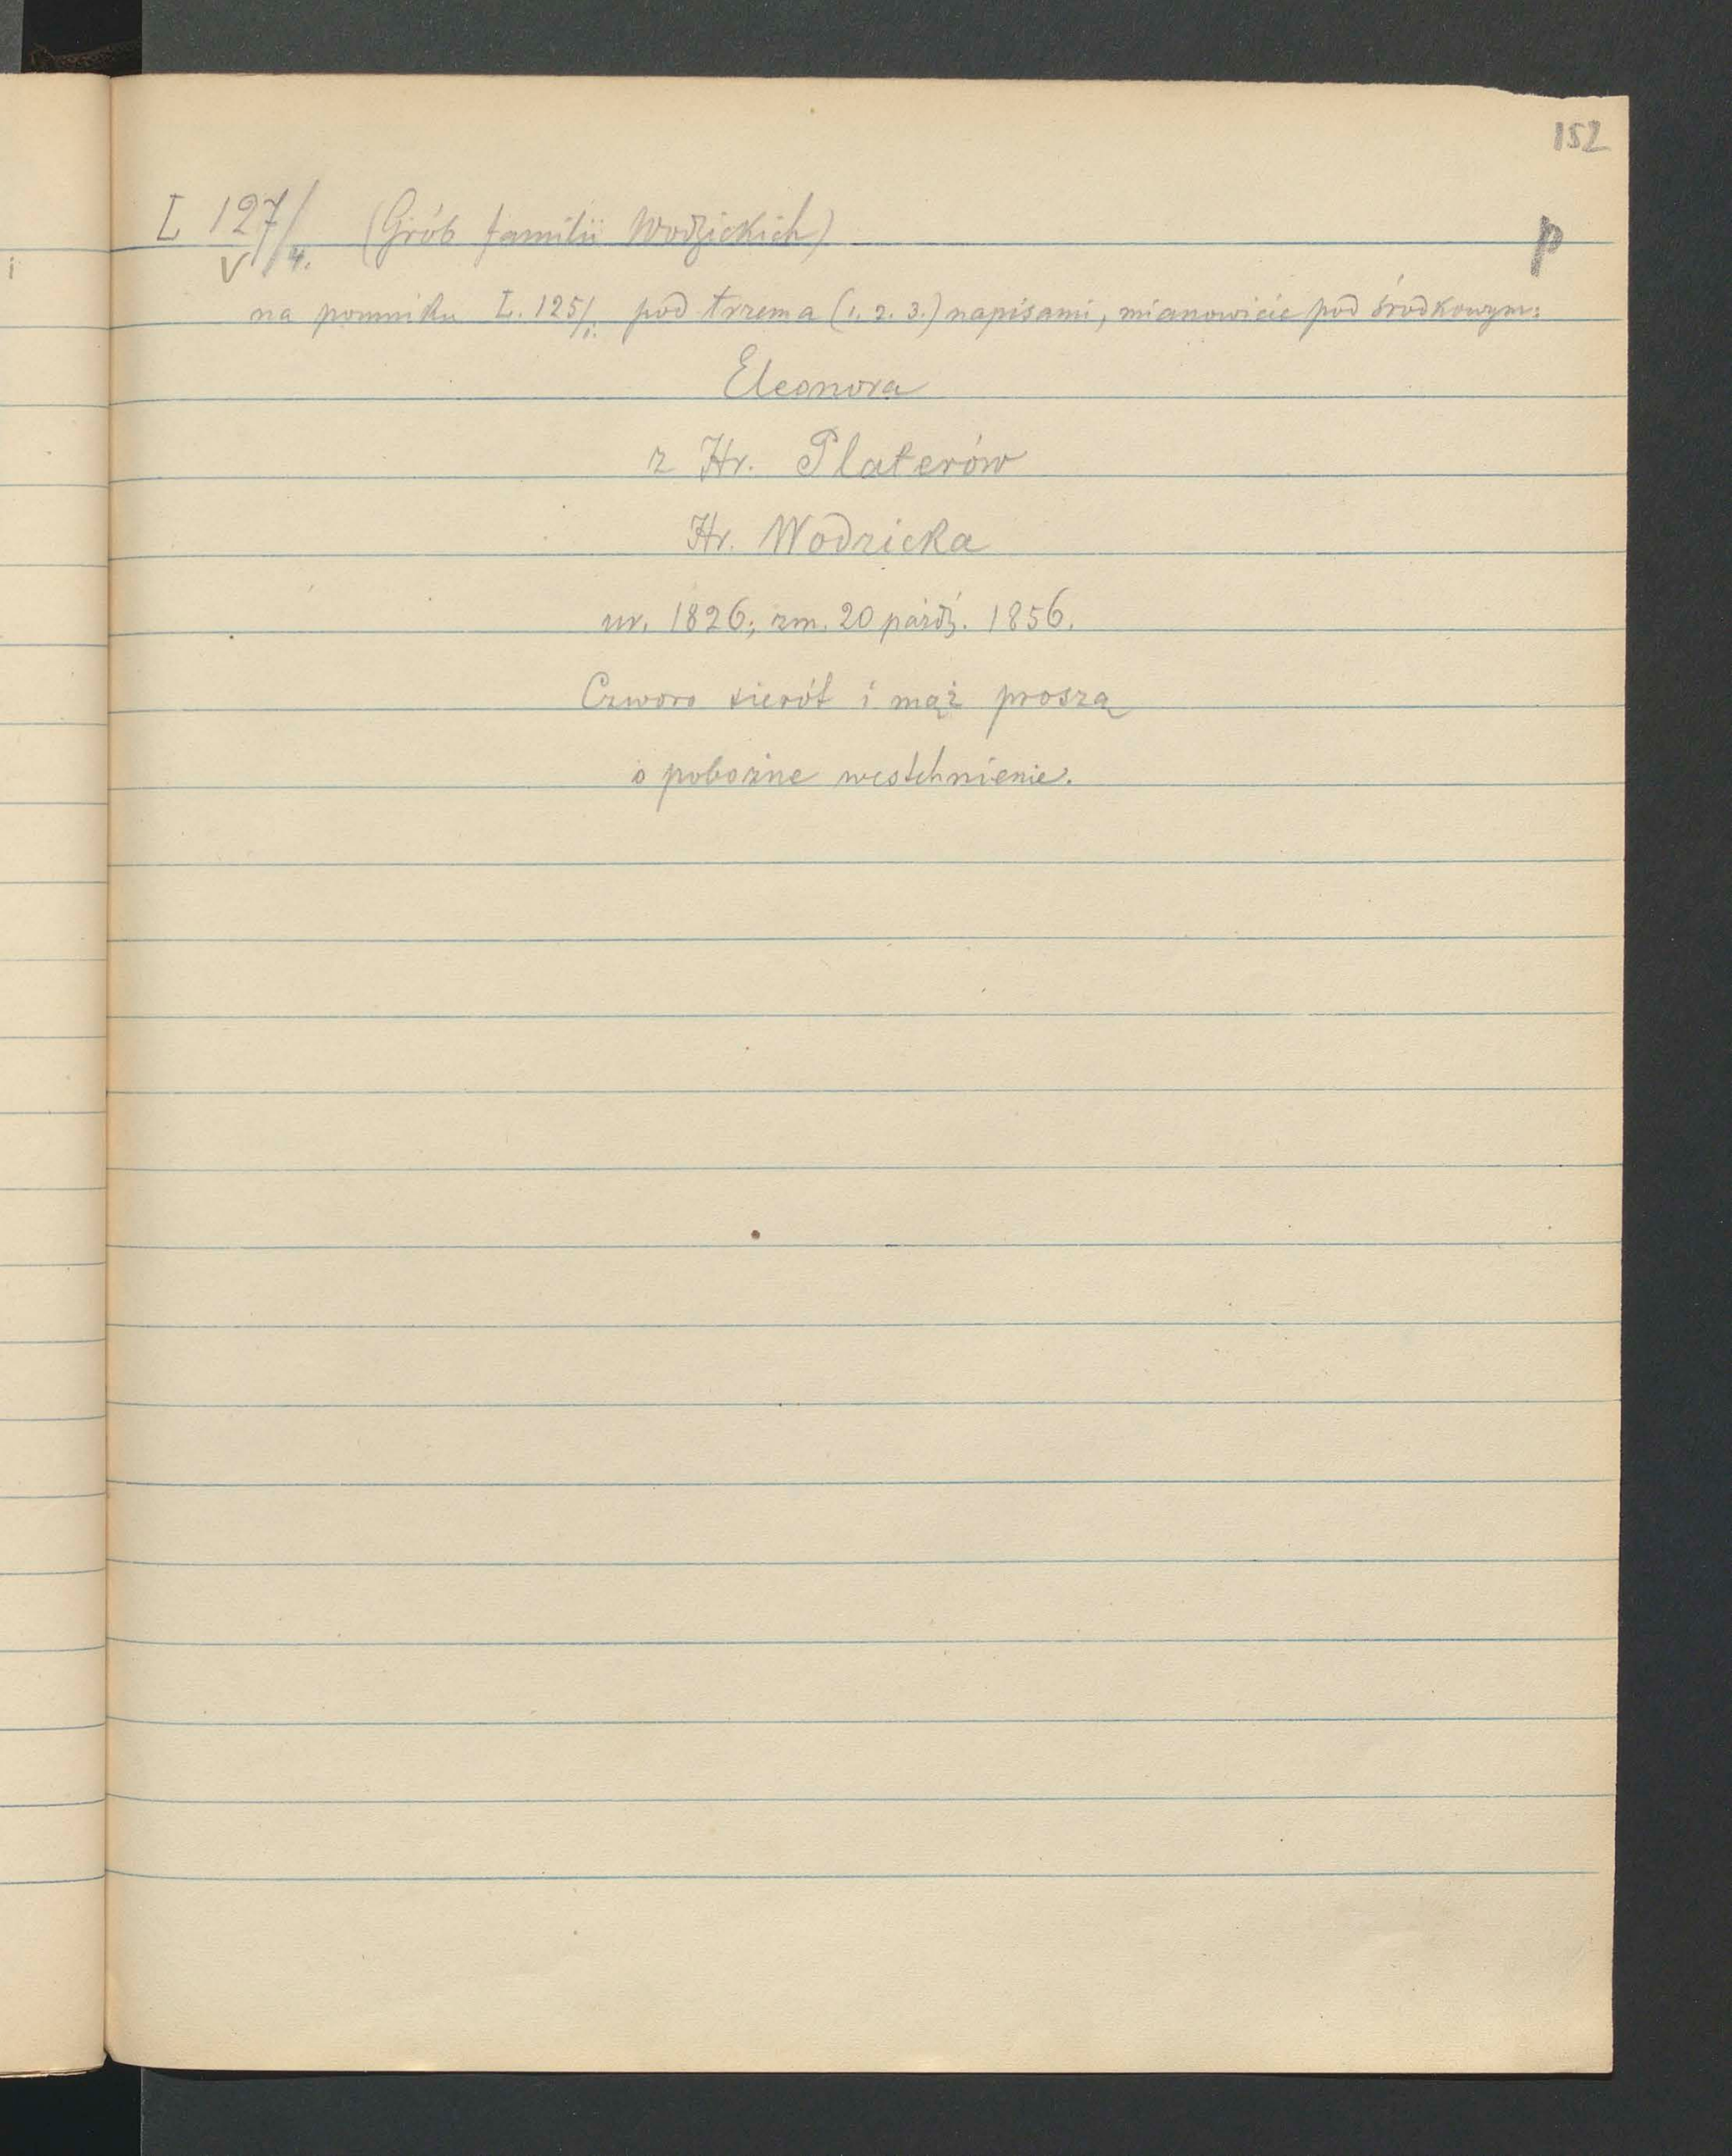 152
L 127/4. (Grób familii Wodzickich)
V
p
na pomniku L. 125/1. pod trzema (1. 2. 3.) napisami, mianowicie pod środkowym:
Eleonora
z Hr. Platerów
Hr. Wodzicka
ur. 1826; zm. 20 paźdz. 1856.
Czworo sierót i mąż proszą
o pobożne westchnienie.
i